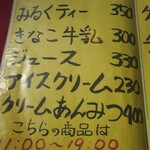 みるくティー 350
きなこ牛乳 300
ジュース 330
アイスクリーム 230
クリームあんみつ 400
こちらの商品は
11:00〜19:00